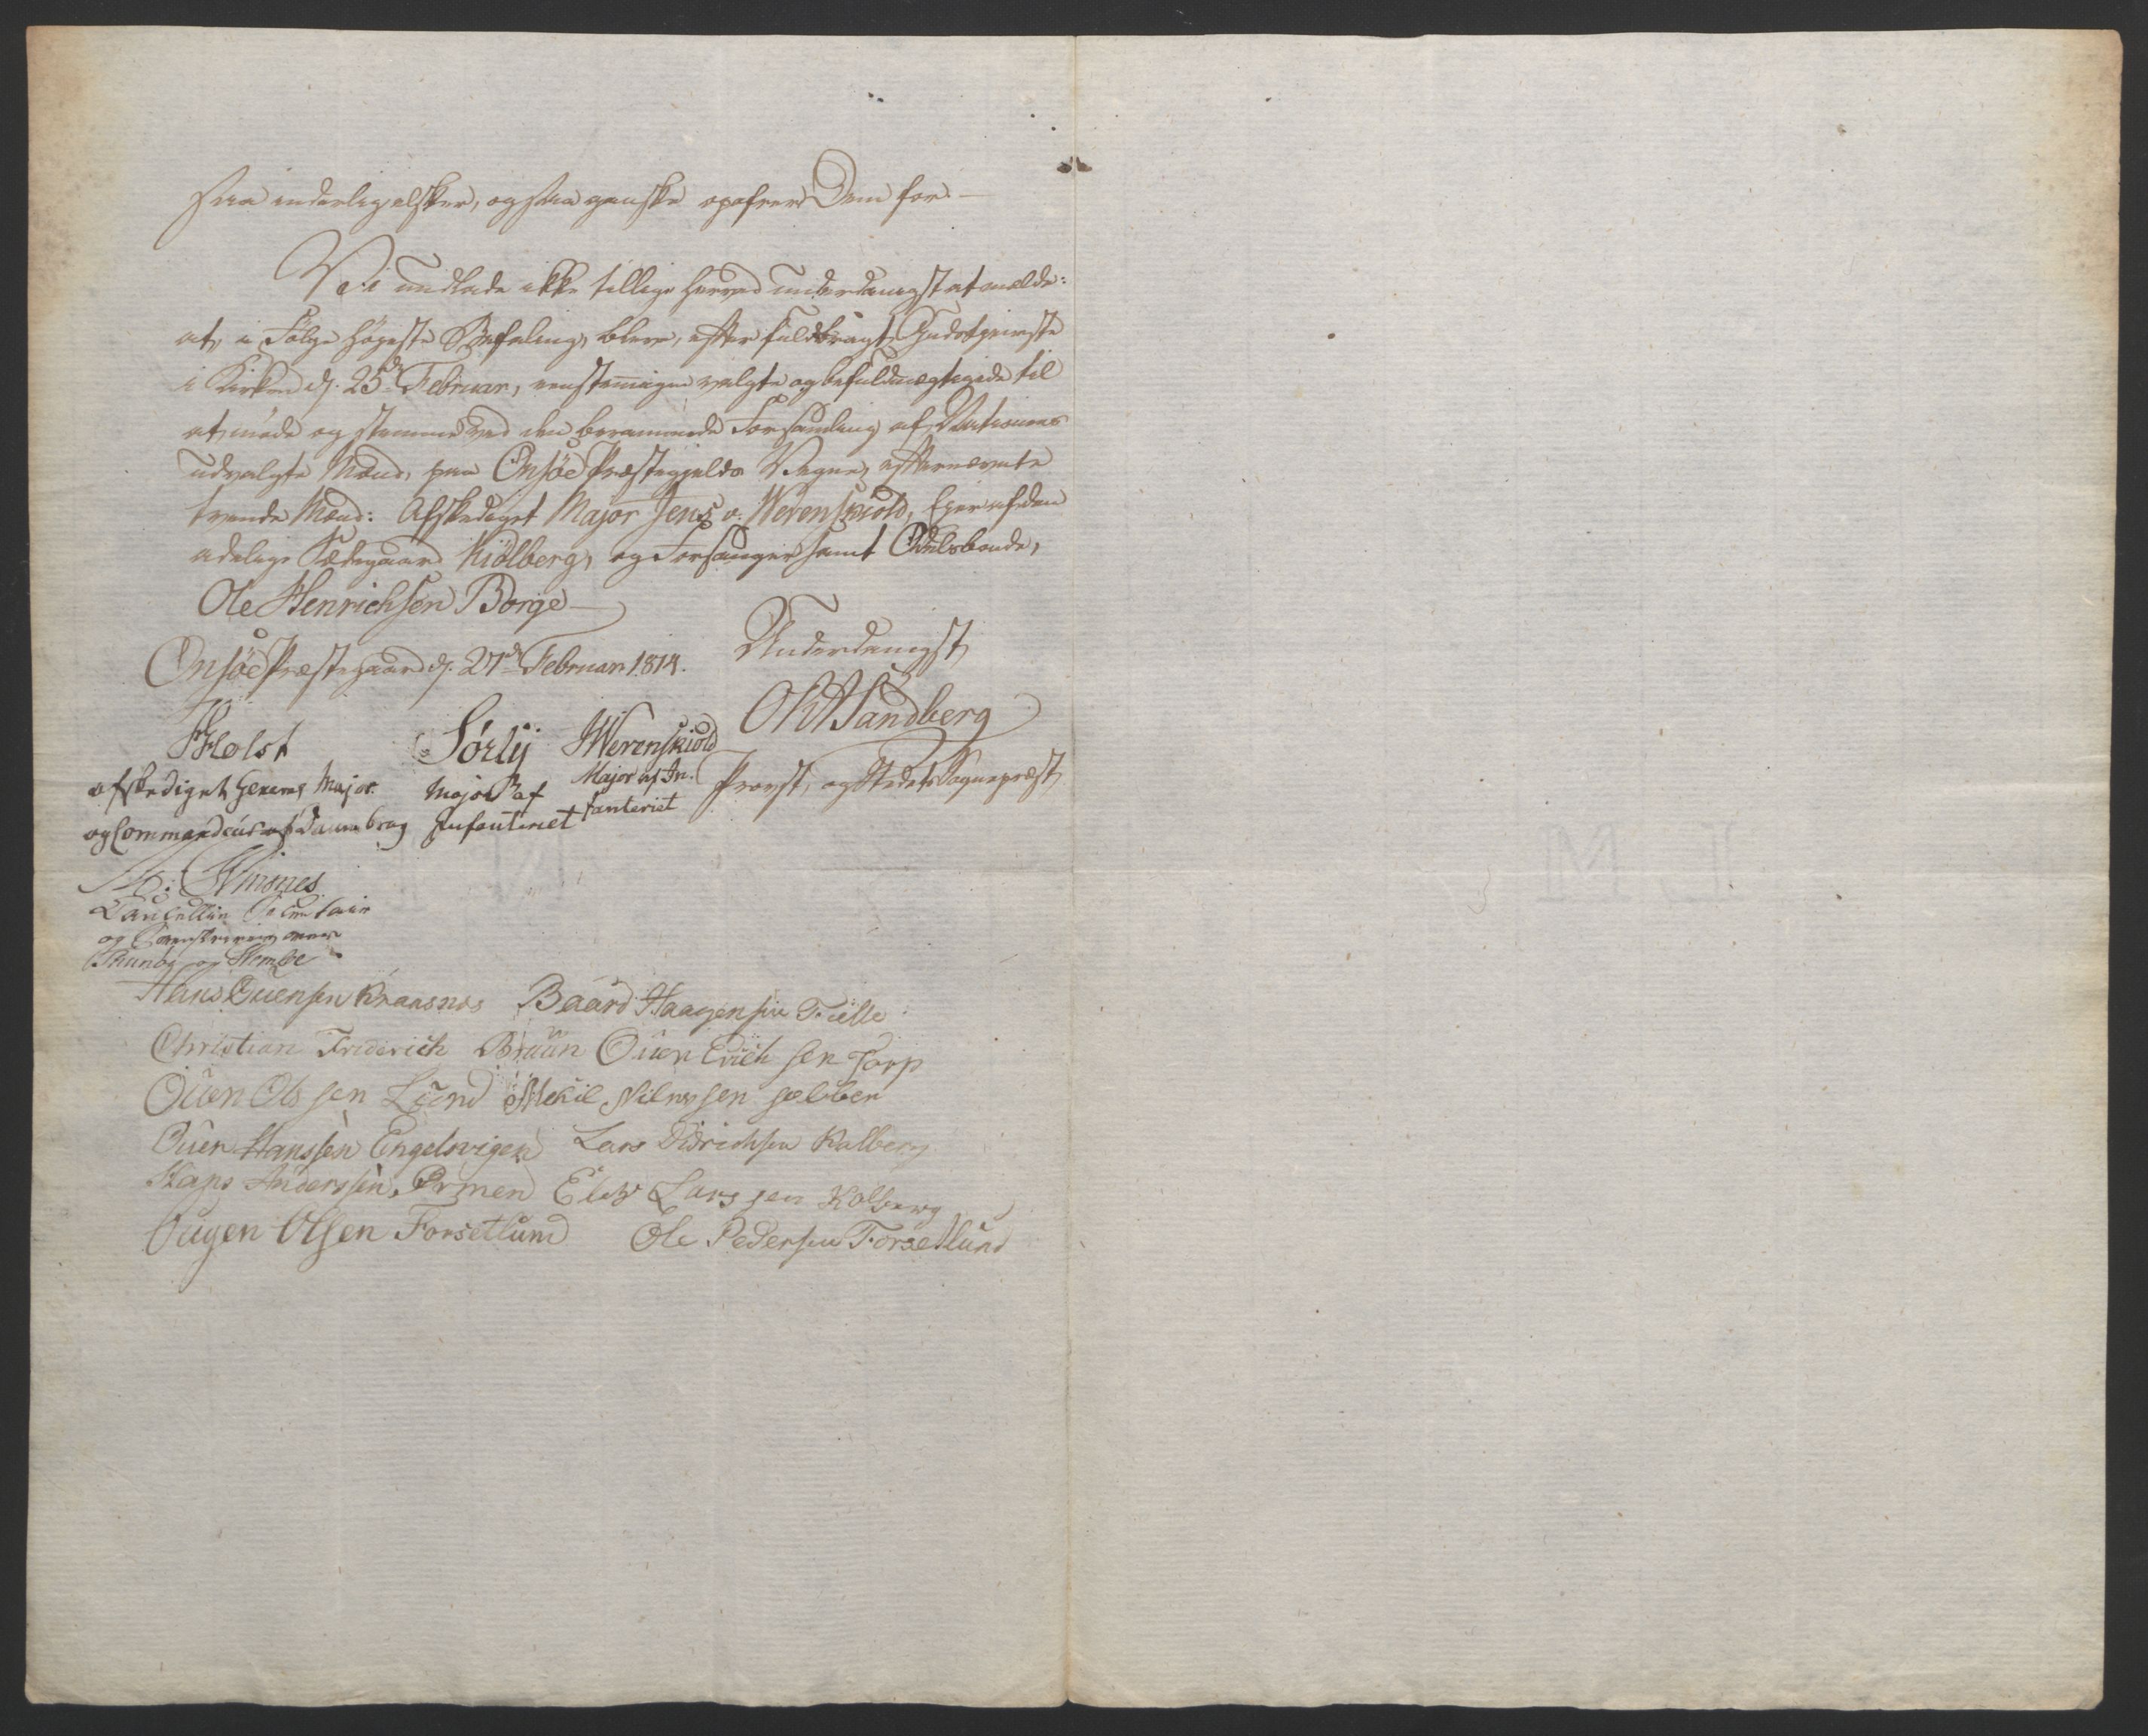 saa inderlig elsker, og saa ganske opofrer Dem for. —
Vi undlade ikke tillige herved underdanigst at melde:
at, i Følge høyeste Befaling, bleve, efter fuldbragt Gudstjeneste
i Kirken d. 25de Februar, eenstemmigen valgte og befuldmægtigede til
at møde og stemme ved den berammede Forsamling af Nationens
udvalgte Mænd, paa Onsöe Præstegjelds Vegne, efternævnte
tvende Mænd: Afskediget Major Jens v. Werenskiold, Eier af den
adelige Sædegaard Kiölberg, og Forsanger samt Odelsbonde,
Ole Henrichsen Borge —
Onsöe Præstegaard d. 27de Februar 1814.
Underdanigst
OR Sandberg
Provst, og Stedets Sognepræst
Holst
afskediget General Major
og Commandeur af Dannebrog
Sørly
Major af
Infanteriet
JWerenskiold
Major af In-
fanteriet
Wisnes
Cancellie Secretair
og Sorenskriver over
Thunøe og
Hans Ouensen Kraasnes Baard Haagensen Tielle
Christian Friderich Bruun Ouen Erichsen Torp
Ouen Olssen Lund Mekil Nilessen
Ouen Hanssen Engelsvigen Lars Didrichsen Kalberg
Hans Anderssen Ørmen Elis Larssen Kolberg
Ougen Olsen Forsetlund Ole Pedersen Forsetlund